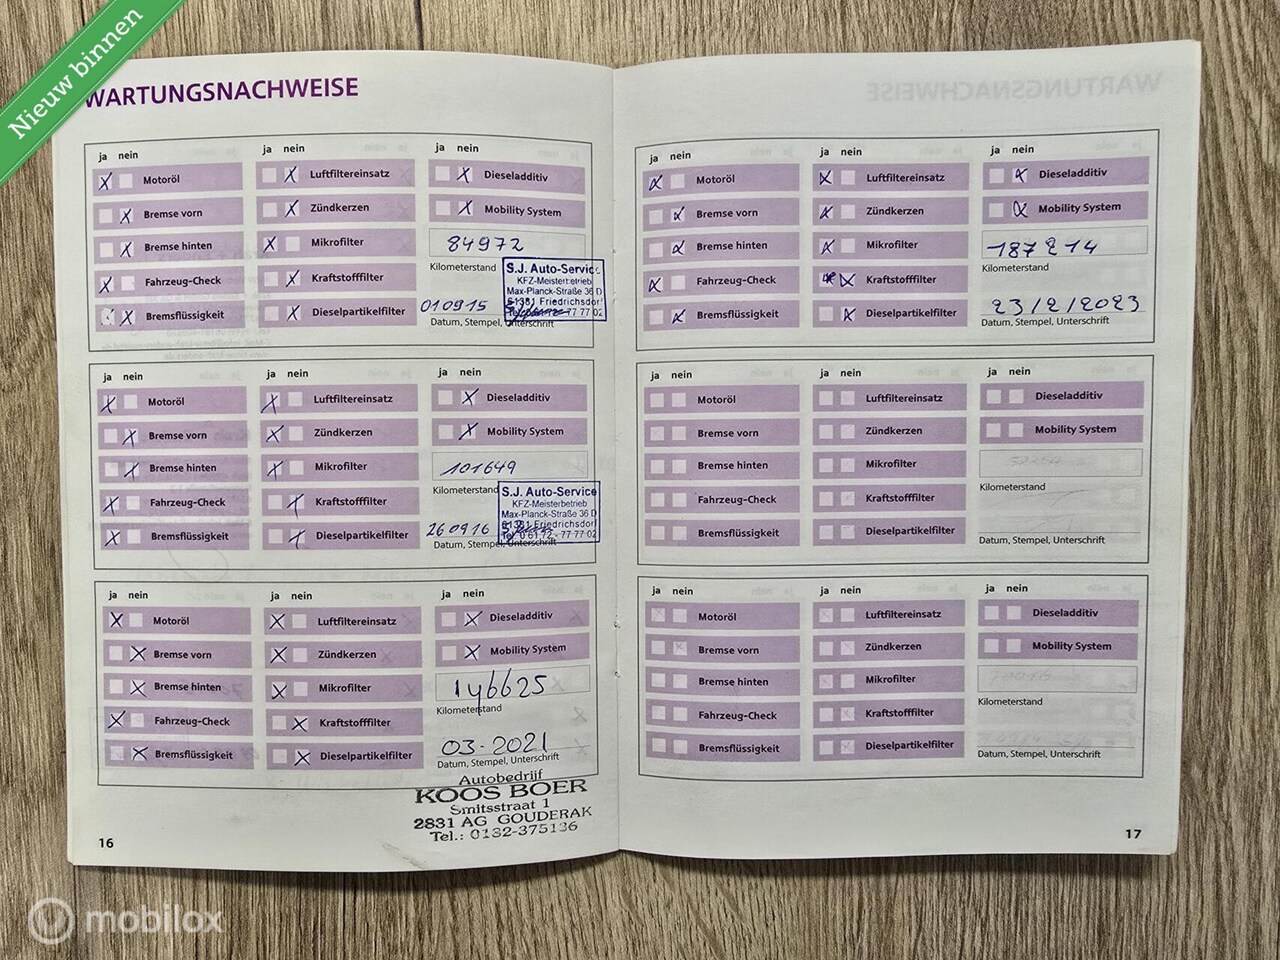 Nieuw binnen
WARTUNGSNACHWEISE
ja nein
Motoröl
Bremse vorn
Bremse hinten
Fahrzeug-Check
Bremsflüssigkeit
ja nein
Luftfiltereinsatz
Zündkerzen
Mikrofilter
Kraftstofffilter
Dieselpartikelfilter
ja nein
Dieseladditiv
Mobility System
84972
Kilometerstand
010915
Datum, Stempel, Unterschrift
S.J. Auto-Service
KFZ-Meisterbetrieb
Max-Planck-Straße 36 D
61381 Friedrichsdorf
Tel. 0 61 72 - 77 77 02
ja nein
Motoröl
Bremse vorn
Bremse hinten
Fahrzeug-Check
Bremsflüssigkeit
ja nein
Luftfiltereinsatz
Zündkerzen
Mikrofilter
Kraftstofffilter
Dieselpartikelfilter
ja nein
Dieseladditiv
Mobility System
101649
Kilometerstand
260916
Datum, Stempel, Unterschrift
S.J. Auto-Service
KFZ-Meisterbetrieb
Max-Planck-Straße 36 D
61381 Friedrichsdorf
Tel. 0 61 72 - 77 77 02
ja nein
Motoröl
Bremse vorn
Bremse hinten
Fahrzeug-Check
Bremsflüssigkeit
ja nein
Luftfiltereinsatz
Zündkerzen
Mikrofilter
Kraftstofffilter
Dieselpartikelfilter
ja nein
Dieseladditiv
Mobility System
146625
Kilometerstand
03-2021
Datum, Stempel, Unterschrift
Autobedrijf
KOOS BOER
Smitsstraat 1
2831 AG GOUDERAK
Tel.: 0182-375136
16
ja nein
Motoröl
Bremse vorn
Bremse hinten
Fahrzeug-Check
Bremsflüssigkeit
ja nein
Luftfiltereinsatz
Zündkerzen
Mikrofilter
Kraftstofffilter
Dieselpartikelfilter
ja nein
Dieseladditiv
Mobility System
187214
Kilometerstand
23/2/2023
Datum, Stempel, Unterschrift
ja nein
Motoröl
Bremse vorn
Bremse hinten
Fahrzeug-Check
Bremsflüssigkeit
ja nein
Luftfiltereinsatz
Zündkerzen
Mikrofilter
Kraftstofffilter
Dieselpartikelfilter
ja nein
Dieseladditiv
Mobility System
Kilometerstand
Datum, Stempel, Unterschrift
ja nein
Motoröl
Bremse vorn
Bremse hinten
Fahrzeug-Check
Bremsflüssigkeit
ja nein
Luftfiltereinsatz
Zündkerzen
Mikrofilter
Kraftstofffilter
Dieselpartikelfilter
ja nein
Dieseladditiv
Mobility System
Kilometerstand
Datum, Stempel, Unterschrift
17
mobilox